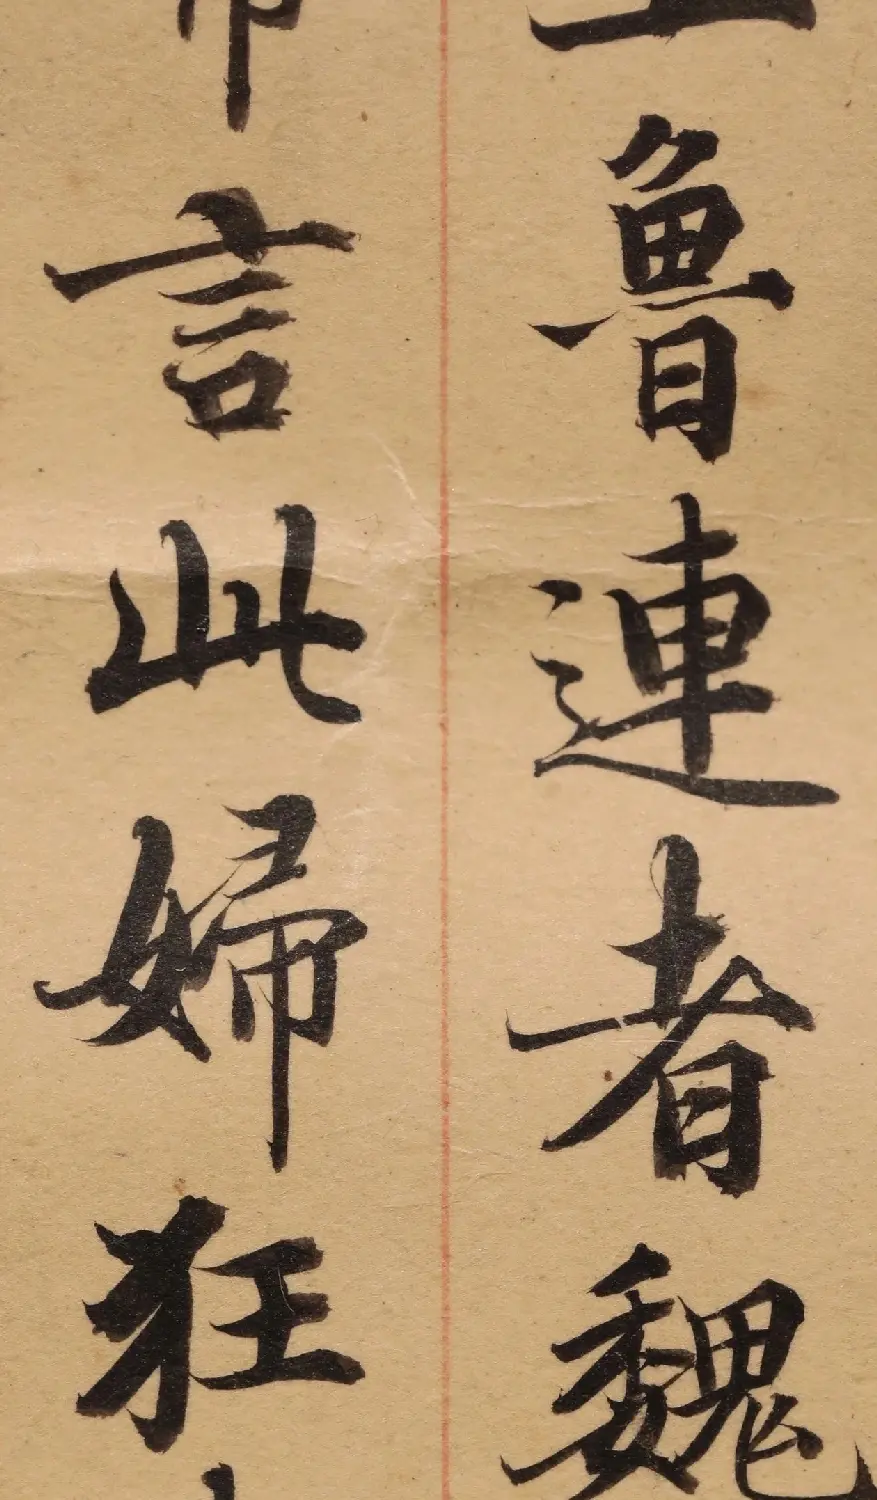 魯連者魏
言此婦狂